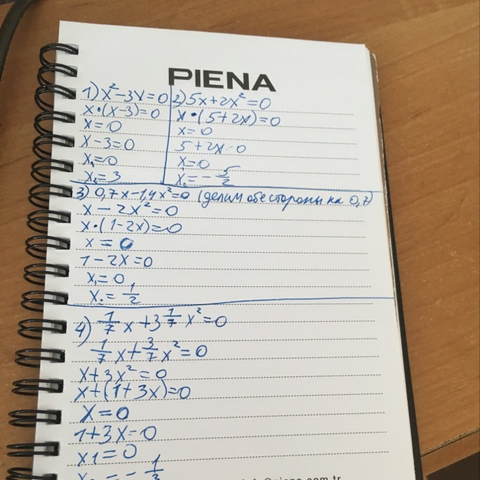 PIENA
1) x²-3x=0
x•(x-3)=0
x=0
x-3=0
x₁=0
x₂=3
2) 5x+2x²=0
x•(5+2x)=0
x=0
5+2x=0
x₁=0
x₂=-5/2
3) 0,7x-1,4x²=0 (делим обе стороны на 0,7)
x-2x²=0
x•(1-2x)=0
x=0
1-2x=0
x₁=0
x₂=1/2
4) 1/7x+3 1/7x²=0
1/7x+3/7x²=0
x+3x²=0
x+(1+3x)=0
x=0
1+3x=0
x1=0
x₂=-1/3